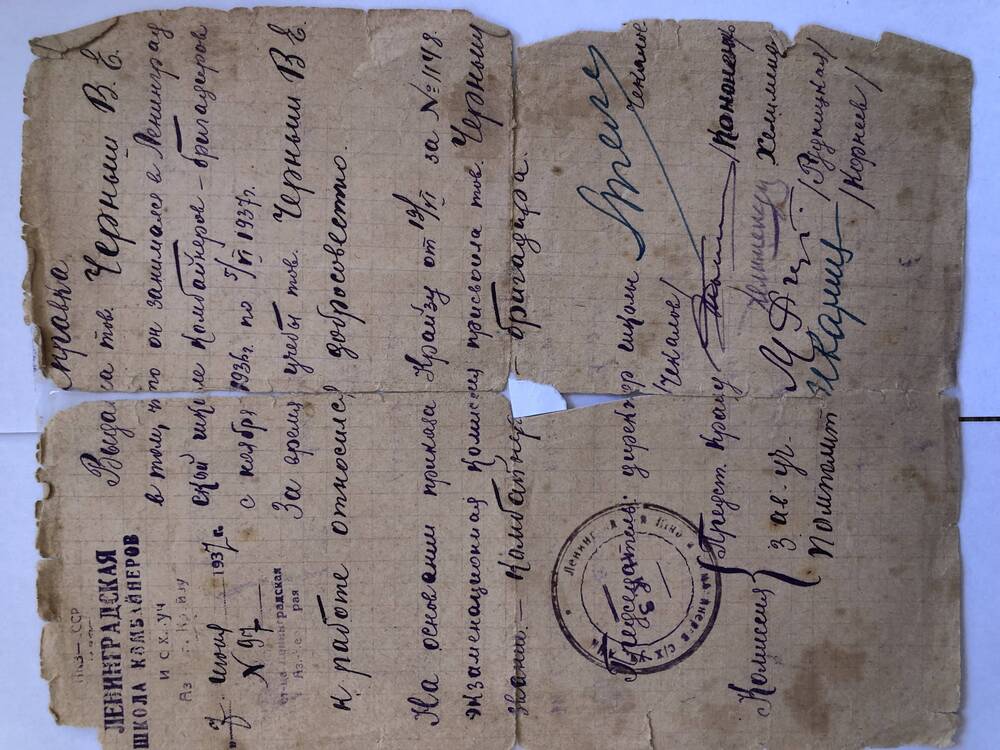 Справка
НКЗ — СССР
ЛЕНИНГРАДСКАЯ
ШКОЛА КОМБАЙНЕРОВ
"7" июня 1937 г.
N 97
ст-ца Ленинградская
Выдана тов. Черныш В. Е.
в том, что он занимался в Ленинград
ской школе Комбайнеров – бригадиров
с ноября 1936 г. по 5/VI 1937 г.
За время учебы тов. Черныш В Е.
к работе относился добросовестно.
На основании приказа Крайзу от 19/VI за № 1148.
экзаменационная комиссия присвоила тов. Черныш
звание – Комбайнера – бригадира.
Председатель: директор школы
Чекалов
/Чекалов/
Комиссия
Предст. Крайзу /Кононенко
Хелименд
Зав. уч. /Рудницкая/
Помполит /Корнеев/